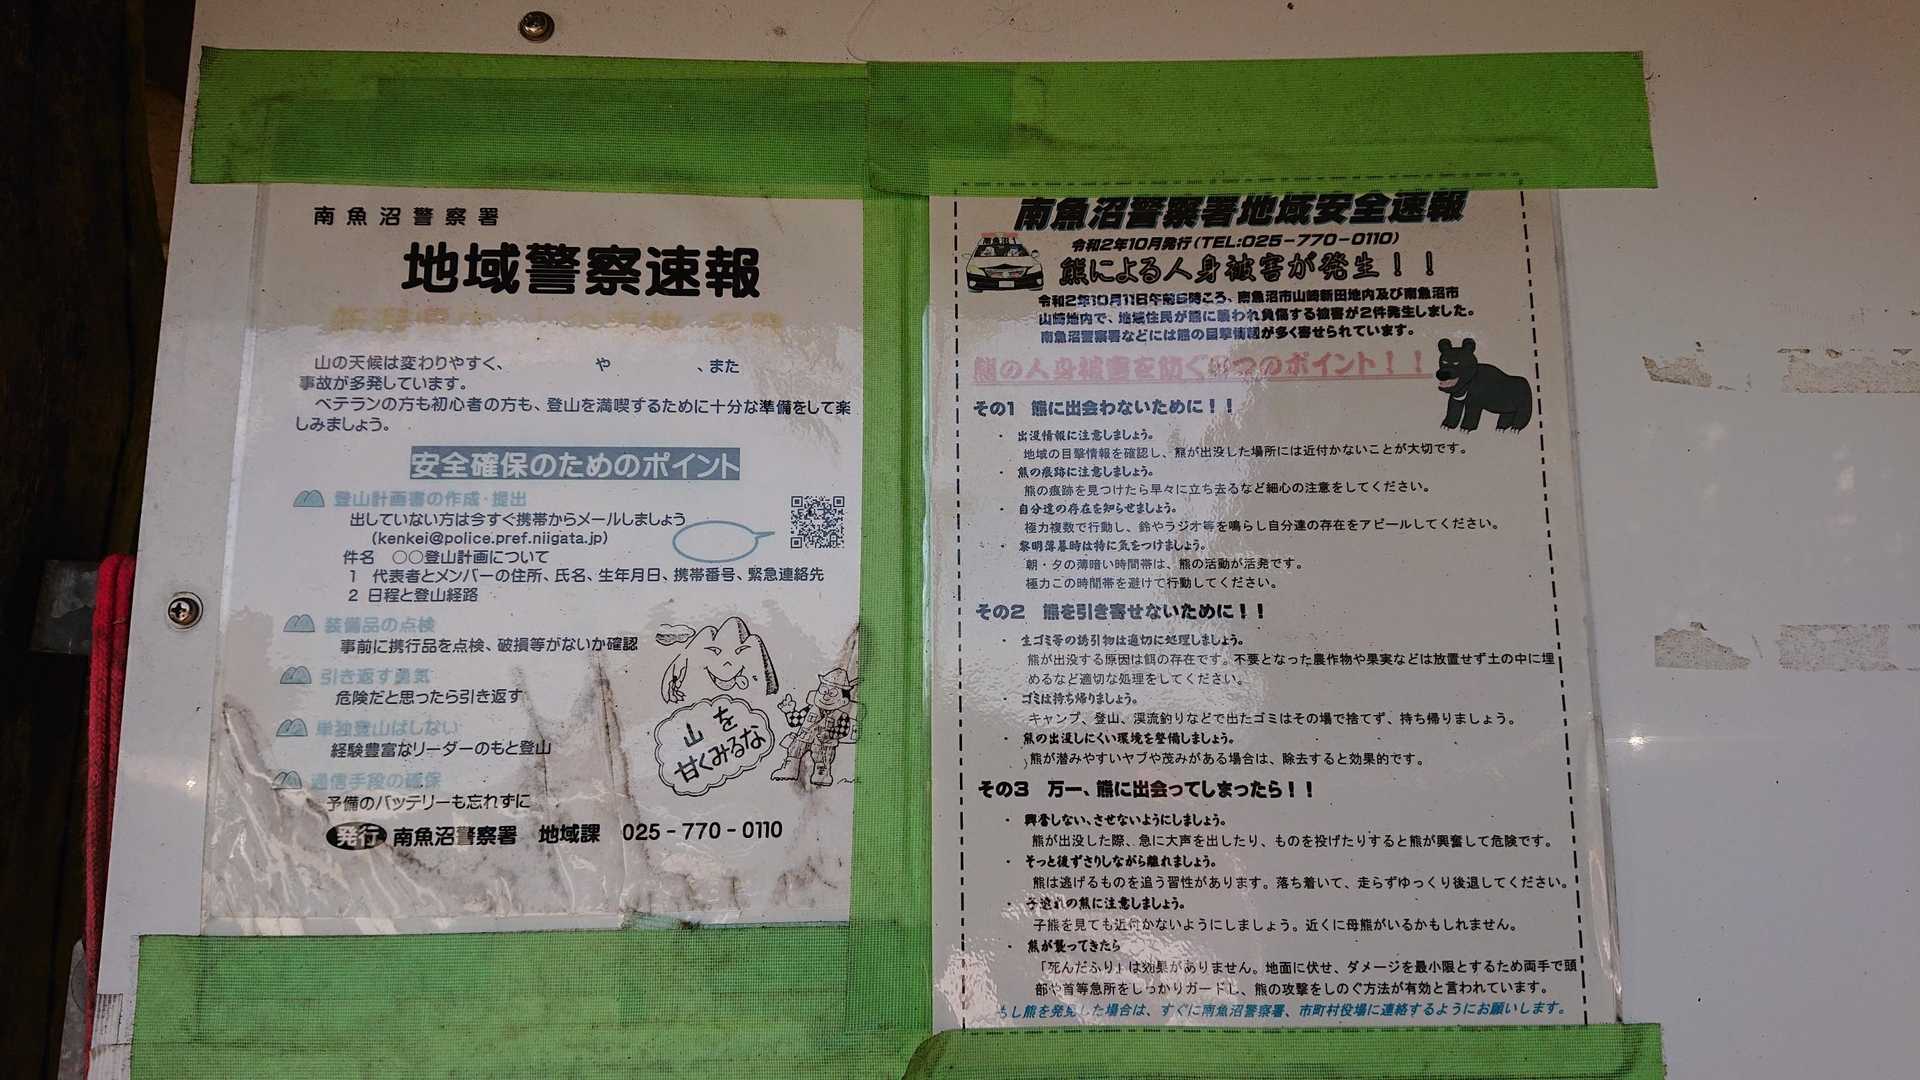 南魚沼警察署
地域警察速報
山の天候は変わりやすく、 や 、また
事故が多発しています。
ベテランの方も初心者の方も、登山を満喫するために十分な準備をして楽
しみましょう。
安全確保のためのポイント
登山計画書の作成・提出
出していない方は今すぐ携帯からメールしましょう
(kenkei@police.pref.niigata.jp)
件名 〇〇登山計画について
1 代表者とメンバーの住所、氏名、生年月日、携帯番号、緊急連絡先
2 日程と登山経路
装備品の点検
事前に携行品を点検、破損等がないか確認
引き返す勇気
危険だと思ったら引き返す
単独登山はしない
経験豊富なリーダーのもと登山
通信手段の確保
予備のバッテリーも忘れずに
山を
甘くみるな
発行 南魚沼警察署 地域課 025-770-0110
南魚沼警察署地域安全速報
令和2年10月発行(TEL:025-770-0110)
熊による人身被害が発生！！
令和2年10月11日午前6時ころ、南魚沼市山崎新田地内及び南魚沼市
山崎地内で、地域住民が熊に襲われ負傷する被害が2件発生しました。
南魚沼警察署などには熊の目撃情報が多く寄せられています。
熊の人身被害を防ぐ つのポイント！！
その1 熊に出会わないために！！
・ 出没情報に注意しましょう。
地域の目撃情報を確認し、熊が出没した場所には近付かないことが大切です。
・ 熊の痕跡に注意しましょう。
熊の痕跡を見つけたら早々に立ち去るなど細心の注意をしてください。
・ 自分達の存在を知らせましょう。
極力複数で行動し、鈴やラジオ等を鳴らし自分達の存在をアピールしてください。
・ 黎明薄暮時は特に気をつけましょう。
朝・夕の薄暗い時間帯は、熊の活動が活発です。
極力この時間帯を避けて行動してください。
その2 熊を引き寄せないために！！
・ 生ゴミ等の誘引物は適切に処理しましょう。
熊が出没する原因は餌の存在です。不要となった農作物や果実などは放置せず土の中に埋
めるなど適切な処理をしてください。
・ ゴミは持ち帰りましょう。
キャンプ、登山、渓流釣りなどで出たゴミはその場で捨てず、持ち帰りましょう。
・ 熊の出没しにくい環境を整備しましょう。
熊が潜みやすいヤブや茂みがある場合は、除去すると効果的です。
その3 万一、熊に出会ってしまったら！！
・ 興奮しない、させないようにしましょう。
熊が出没した際、急に大声を出したり、ものを投げたりすると熊が興奮して危険です。
・ そっと後ずさりしながら離れましょう。
熊は逃げるものを追う習性があります。落ち着いて、走らずゆっくり後退してください。
・ 子連れの熊に注意しましょう。
子熊を見ても近付かないようにしましょう。近くに母熊がいるかもしれません。
・ 熊が襲ってきたら
「死んだふり」は効果がありません。地面に伏せ、ダメージを最小限とするため両手で頭
部や首等急所をしっかりガードし、熊の攻撃をしのぐ方法が有効と言われています。
もし熊を発見した場合は、すぐに南魚沼警察署、市町村役場に連絡するようにお願いします。